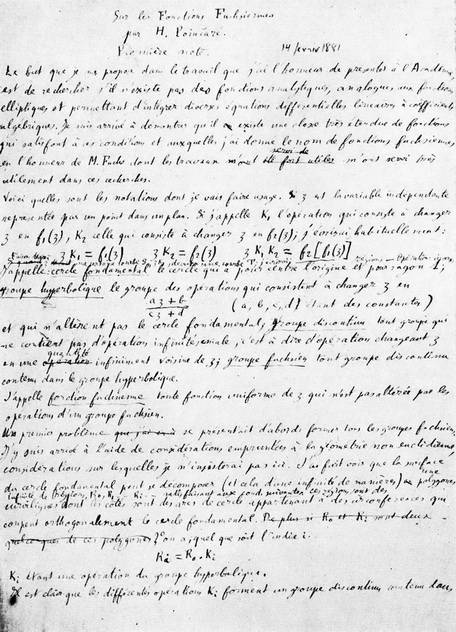 Sur les Fonctions Fuchsiennes
par H. Poincaré.
Première note.
14 février 1881
Le but que je me propose dans le travail que j'ai l'honneur de présenter à l'Académie,
est de rechercher s'il n'existe pas des fonctions analytiques, analogues aux fonctions
elliptiques et permettant d'intégrer diverses équations différentielles linéaires à coefficients
algébriques. Je suis arrivé à démontrer qu'il existe une classe très étendue de fonctions
qui satisfont à ces conditions et auxquelles j'ai donné le nom de fonctions fuchsiennes,
en l'honneur de M. Fuchs dont les travaux m'ont été fort utiles m'ont servi très
utilement dans ces recherches.
Voici quelles sont les notations dont je vais faire usage. Si z est la variable indépendante
représentée par un point dans un plan. Si j'appelle K₁ l'opération qui consiste à changer
z en f₁(z), K₂ celle qui consiste à changer z en f₂(z); j'écrirai habituellement:
z K₁ = f₁(z) z K₂ = f₂(z) z K₁ K₂ = f₂[f₁(z)]
J'appelle cercle fondamental le cercle qui a pour centre l'origine et pour rayon 1;
groupe hyperbolique le groupe des opérations qui consistent à changer z en
az + b
cz + d
(a, b, c, d étant des constantes)
et qui n'altèrent pas le cercle fondamental; groupe discontinu tout groupe qui
ne contient pas d'opération infinitésimale, c'est à dire d'opération changeant z
en une quantité infiniment voisine de z; groupe fuchsien tout groupe discontinu
contenu dans le groupe hyperbolique.
J'appelle fonction fuchsienne toute fonction uniforme de z qui n'est pas altérée par les
opérations d'un groupe fuchsien.
Un premier problème se présentait d'abord: former tous les groupes fuchsiens,
J'y suis arrivé à l'aide de considérations empruntées à la géométrie non euclidienne,
considérations sur lesquelles je n'insisterai pas ici. J'ai fait voir que la surface
du cercle fondamental peut se décomposer (et cela d'une infinité de manières) en une
infinité de
curvilignes dont les côtés sont des arcs de cercle appartenant à des circonférences qui
coupent orthogonalement le cercle fondamental. De plus si R₀ et Kᵢ sont deux
quelconques de ces polygones 2° on a, quel que soit l'indice i:
Rᵢ = R₀ . Kᵢ
Kᵢ étant une opération du groupe hyperbolique.
Il est clair que les différentes opérations Kᵢ forment un groupe discontinu contenu dans